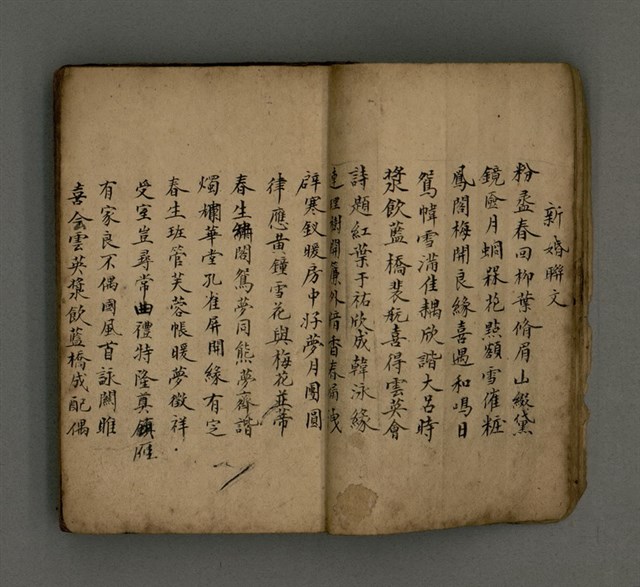 新婚聯文
粉盝春回柳葉脩眉山綴黛
鏡匳月蜩槑花點額雪催粧
鳳閣梅開良緣喜遇和鳴日
鴛幃雪滿佳耦欣諧大呂時
漿飲藍橋裴航喜得雲英會
詩題紅葉于祐欣成韓泳緣
連理樹開簾外惜香春
辟寒釵暖房中好夢月團圓
律應黃鐘雪花與梅花並蒂
春生繡閣鴛夢同熊夢齊諧
燭爛華堂孔雀屏開緣有定
春生班管芙蓉帳暖夢徵祥
受室豈尋常曲禮特隆奠雁
有家良不偶國風首詠關雎
喜會雲英漿飲藍橋成配偶